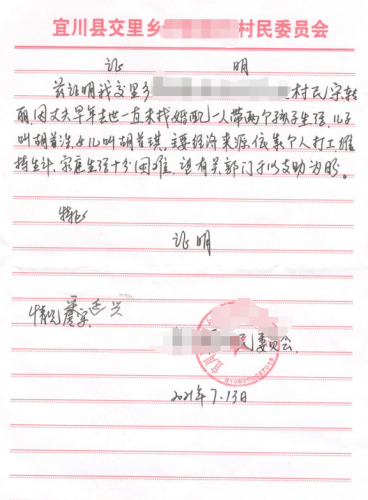 宜川县交里乡 村民委员会
证 明
兹证明我交里乡 村民宋转
丽,因丈夫早年去世一直未找婚配一人带两个孩子生活,儿子
叫胡首 女儿叫胡首琪,主要经济来源依靠个人打工,维
持生计,家庭生活十分困难,望有关部门予以支助为盼。
特此
证明
情况属实
民委员会
2021年7.13日